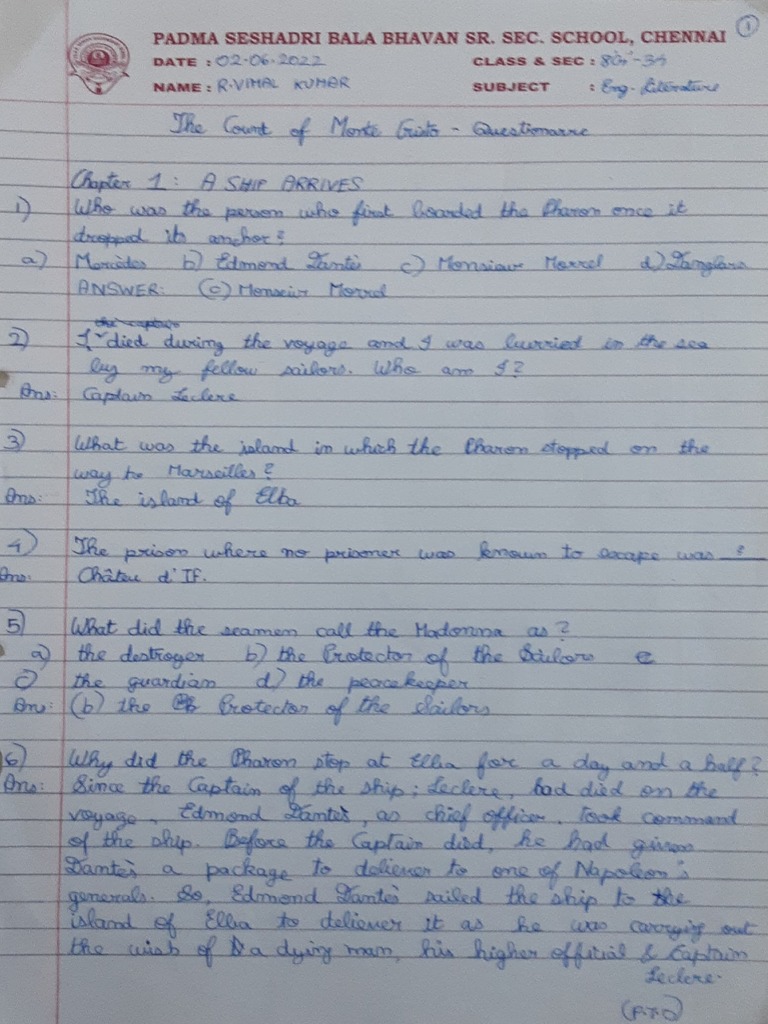 ①
PADMA SESHADRI BALA BHAVAN SR. SEC. SCHOOL, CHENNAI
DATE : 02-06-2022 CLASS & SEC :
NAME : R. VIMAL KUMAR SUBJECT : Eng. Literature
The Count of Monte Cristo - Questionarre
Chapter 1: A SHIP ARRIVES
1) Who was the person who first boarded the Pharon once it
dropped its anchor?
a) Mercèdes b) Edmond Dantès c) Monsieur Morrel d) Danglars
ANSWER: (c) Monseiur Morrel
2) I died during the voyage and I was burried in the sea
by my fellow sailors. Who am I?
Ans: Captain Leclere
3) What was the island in which the Pharon stopped on the
way to Marseilles?
Ans: The island of Elba
4) The prison where no prisoner was known to escape was __?
Ans: Châteu d'IF.
5) What did the seamen call the Madonna as?
a) the destroyer b) the Protector of the Sailors
c) the guardian d) the peacekeeper
Ans: (b) the Protector of the Sailors
6) Why did the Pharon stop at Elba for a day and a half?
Ans: Since the Captain of the ship; Leclere, had died on the
voyage, Edmond Dantès, as chief officer, took command
of the ship. Before the Captain died, he had given
Dantès a package to deliever to one of Napoleon's
generals. So, Edmond Dantès sailed the ship to the
island of Elba to deliever it as he was carrying out
the wish of a dying man, his higher official & Captain
Leclere.
(P.T.O)